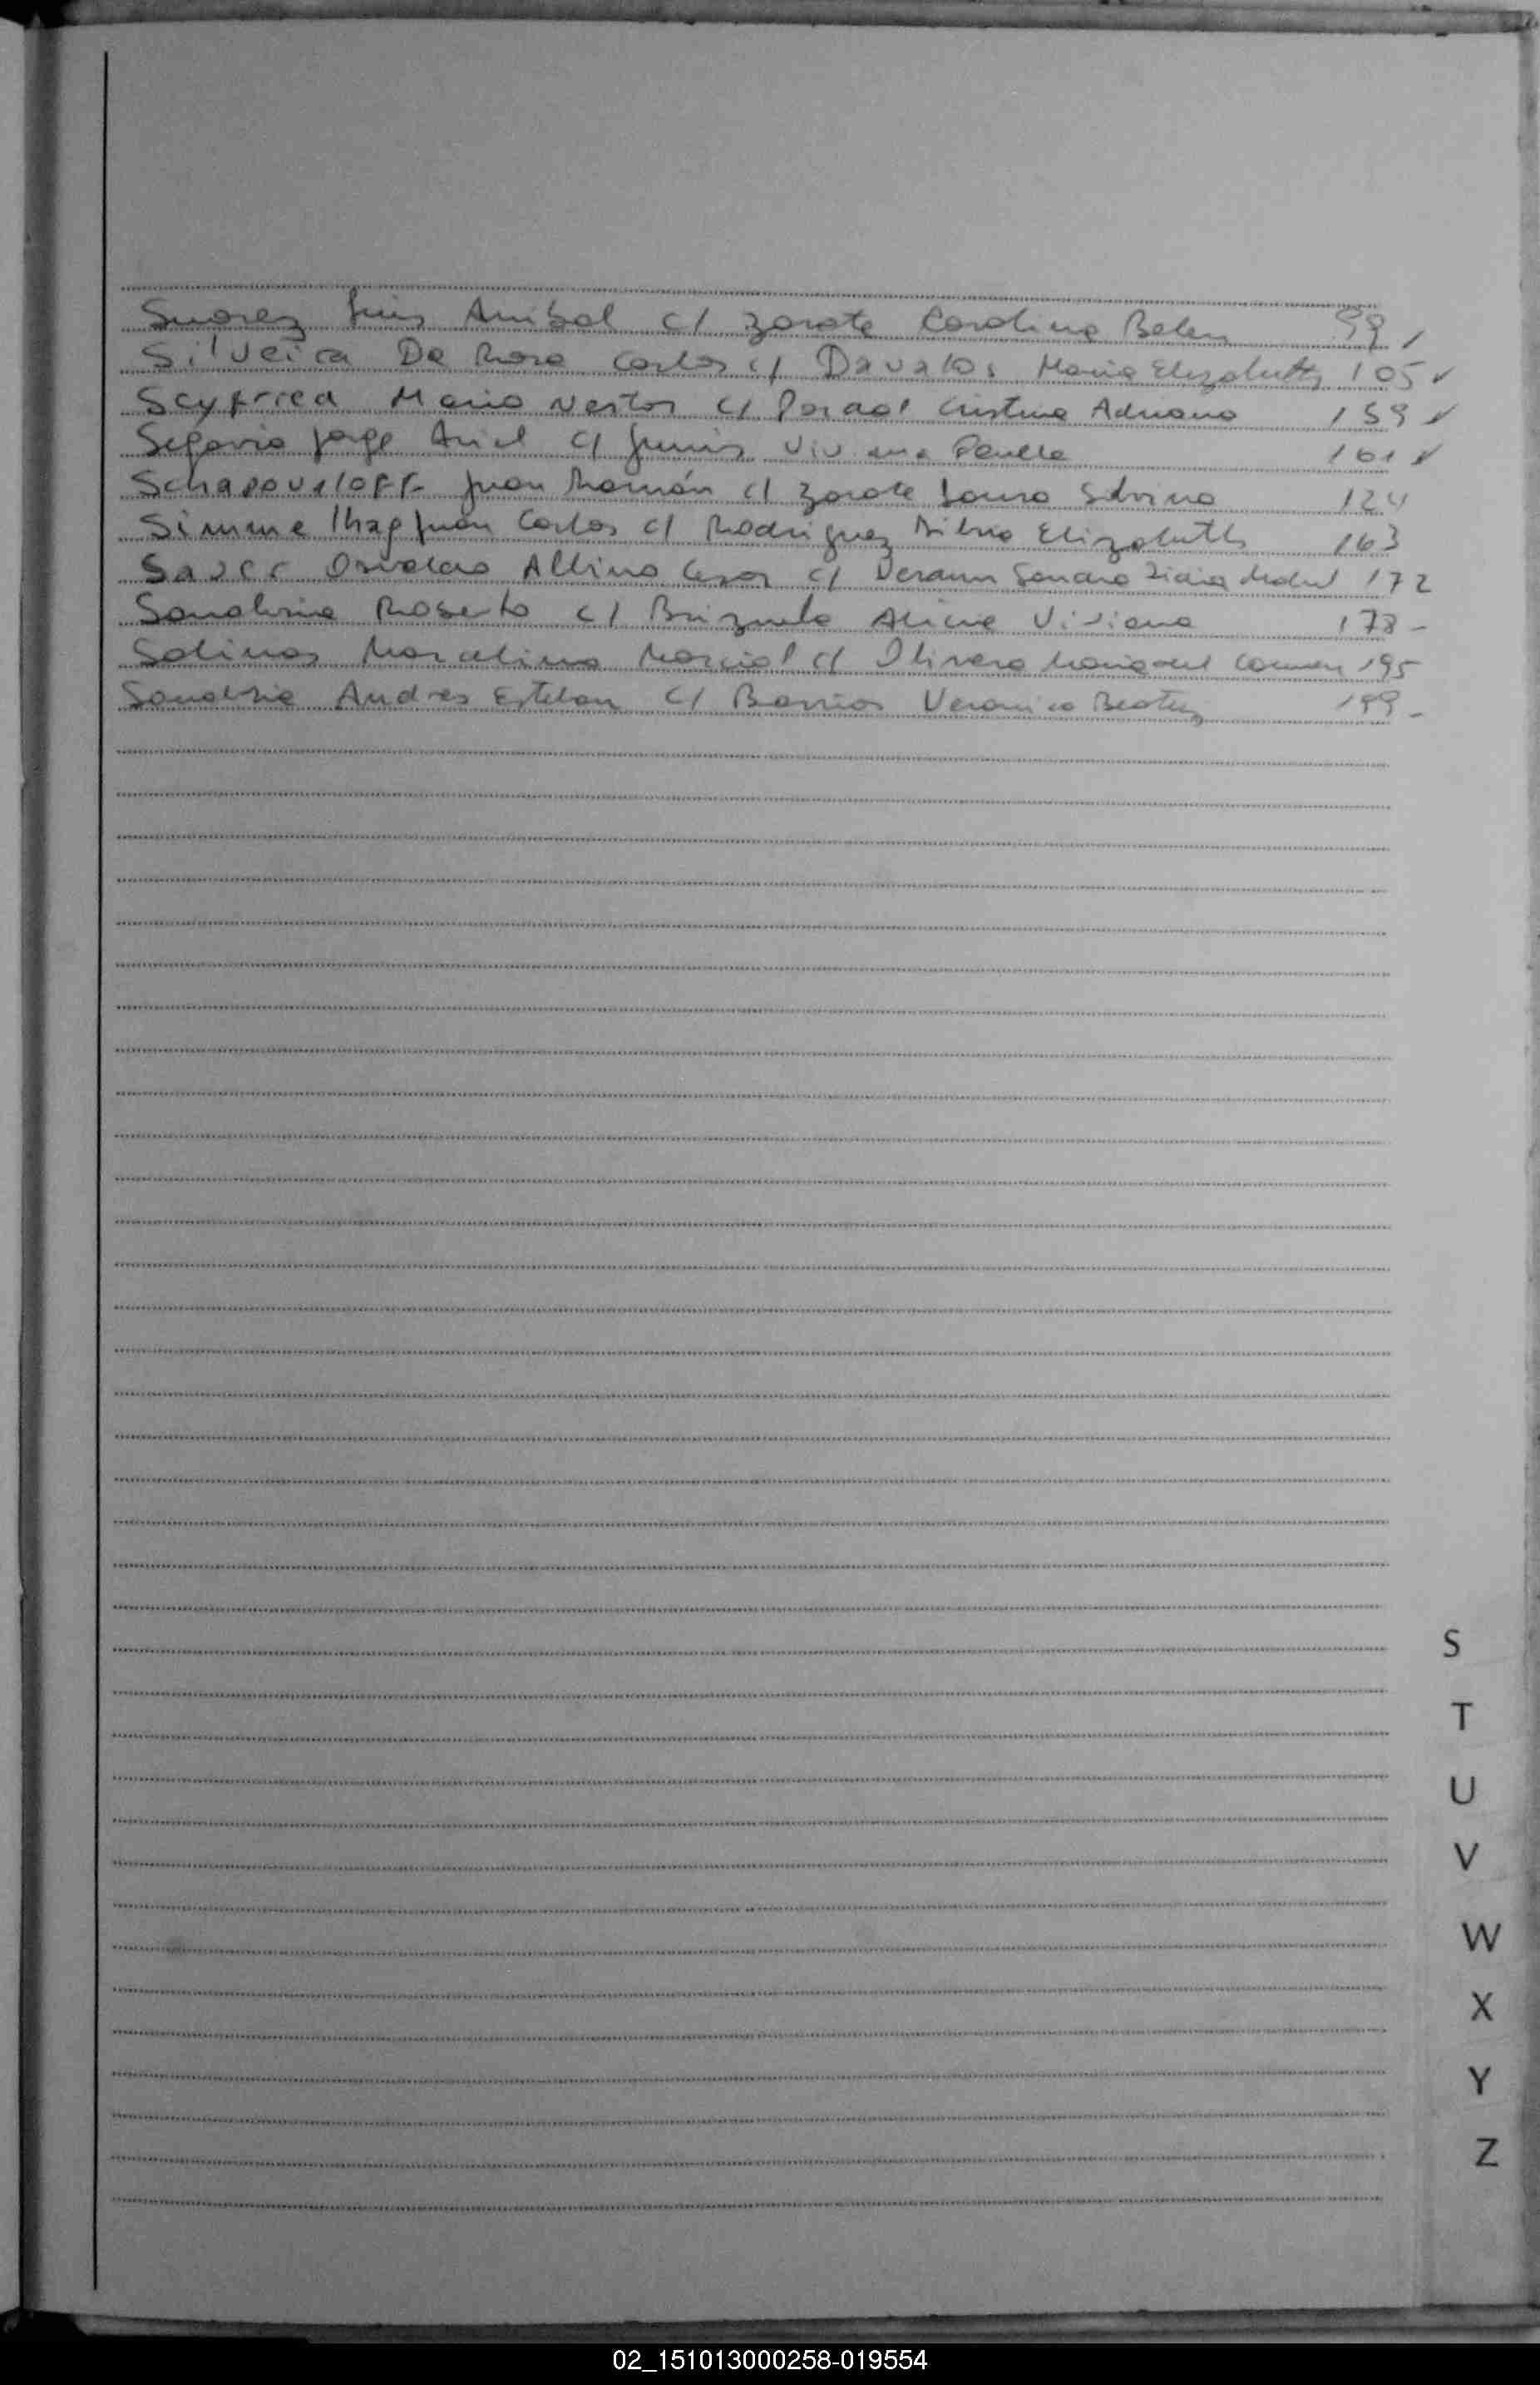 Suarez Luis Anibal c/ Zarate Carolina Belen 99
Silveira Da Rosa Carlos c/ Davalos Maria Elizabeth 105
Seyfried Mario Nestor c/ Cristina Adriana 159
Segovia Jorge Ariel c/ Junis Viviana 161
Schapovaloff Juan Ramón c/ Zarate Laura Silvina 124
Simme Juan Carlos c/ Rodriguez Silvia Elizabeth 163
Sauer Osvaldo Albino Cesar c/ Sandra 172
Sanabria Roberto c/ Brizuela Alicia Viviana 178
Salinas Marcelino Marcial c/ Olivera Maria del Carmen 195
Sanabria Andres Esteban c/ Barrios Veronica Beatriz 199
S
T
U
V
W
X
Y
Z
02_151013000258-019554